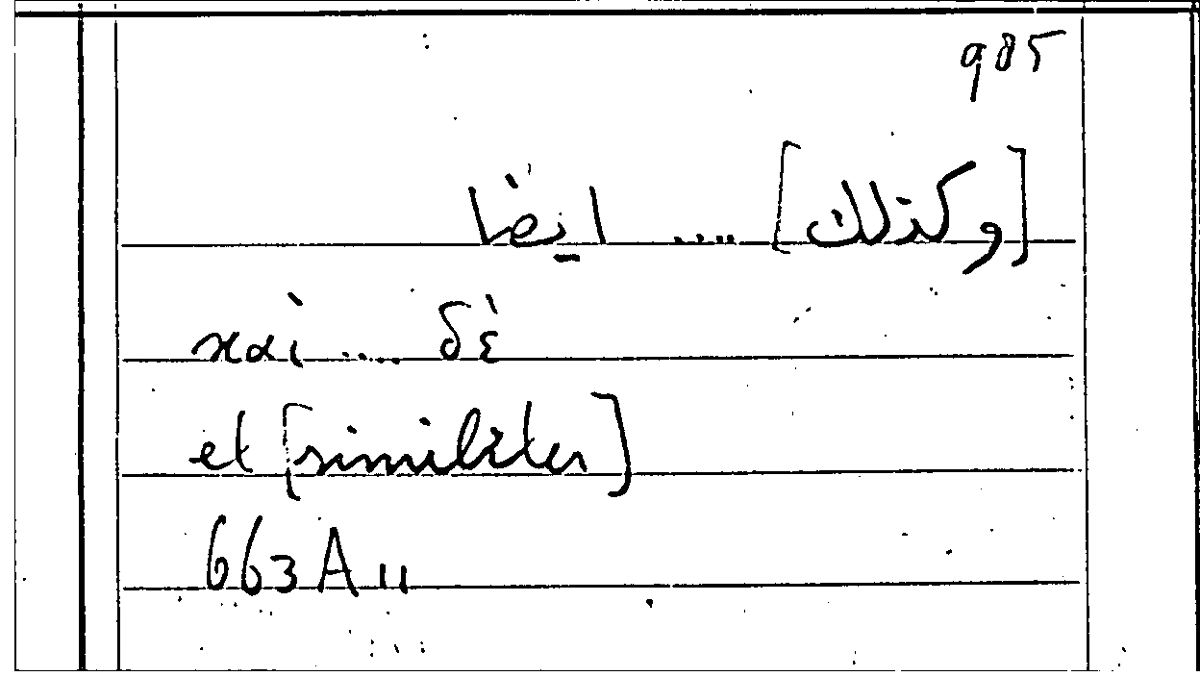 985
[وكذلك] .... ايضا
καὶ .... δὲ
et [similiter]
663A11